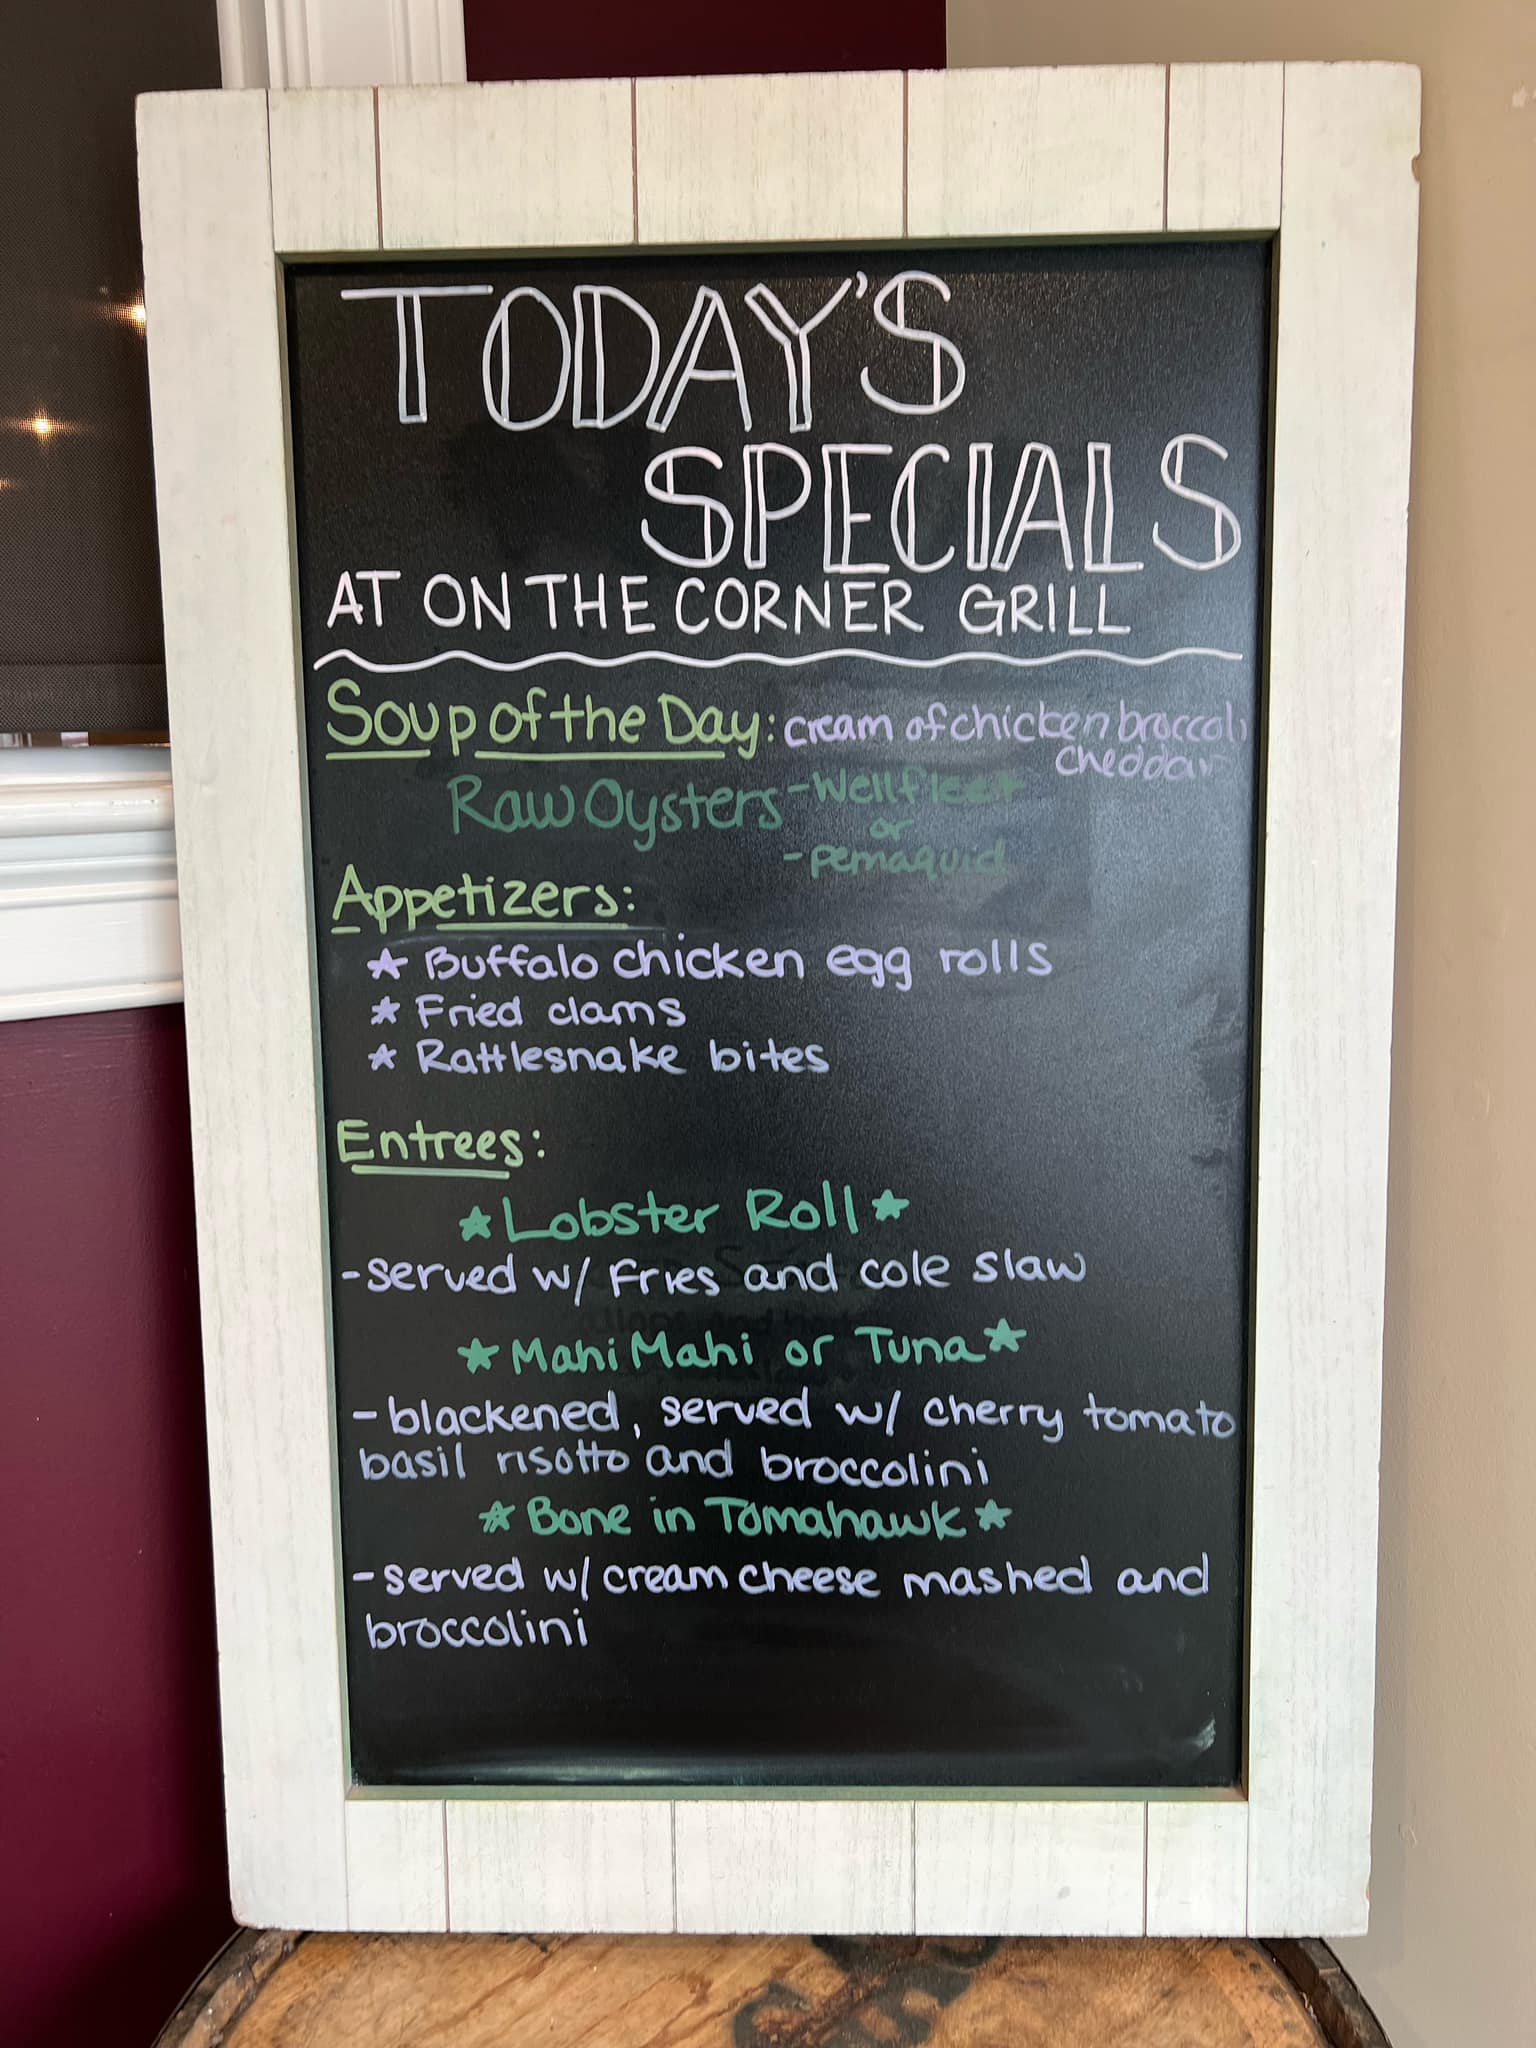 TODAY'S
SPECIALS
AT ON THE CORNER GRILL
Soup of the Day: cream of chicken broccoli
cheddar
Raw Oysters - Wellfleet
or
- pemaquid
Appetizers:
★ Buffalo chicken egg rolls
★ Fried clams
★ Rattlesnake bites
Entrees:
★ Lobster Roll ★
- served w/ fries and cole slaw
★ Mahi Mahi or Tuna ★
- blackened, served w/ cherry tomato
basil risotto and broccolini
★ Bone in Tomahawk ★
- served w/ cream cheese mashed and
broccolini